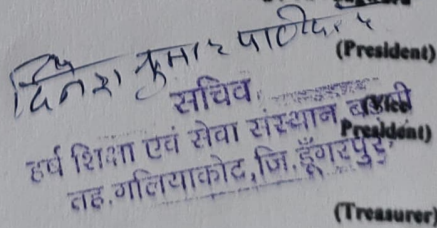 दिनेश कुमार पाटीदार
(President)
सचिव
हर्ष शिक्षा एवं सेवा संस्थान
President)
तह. गलियाकोट, जि. डूँगरपुर
(Treasurer)